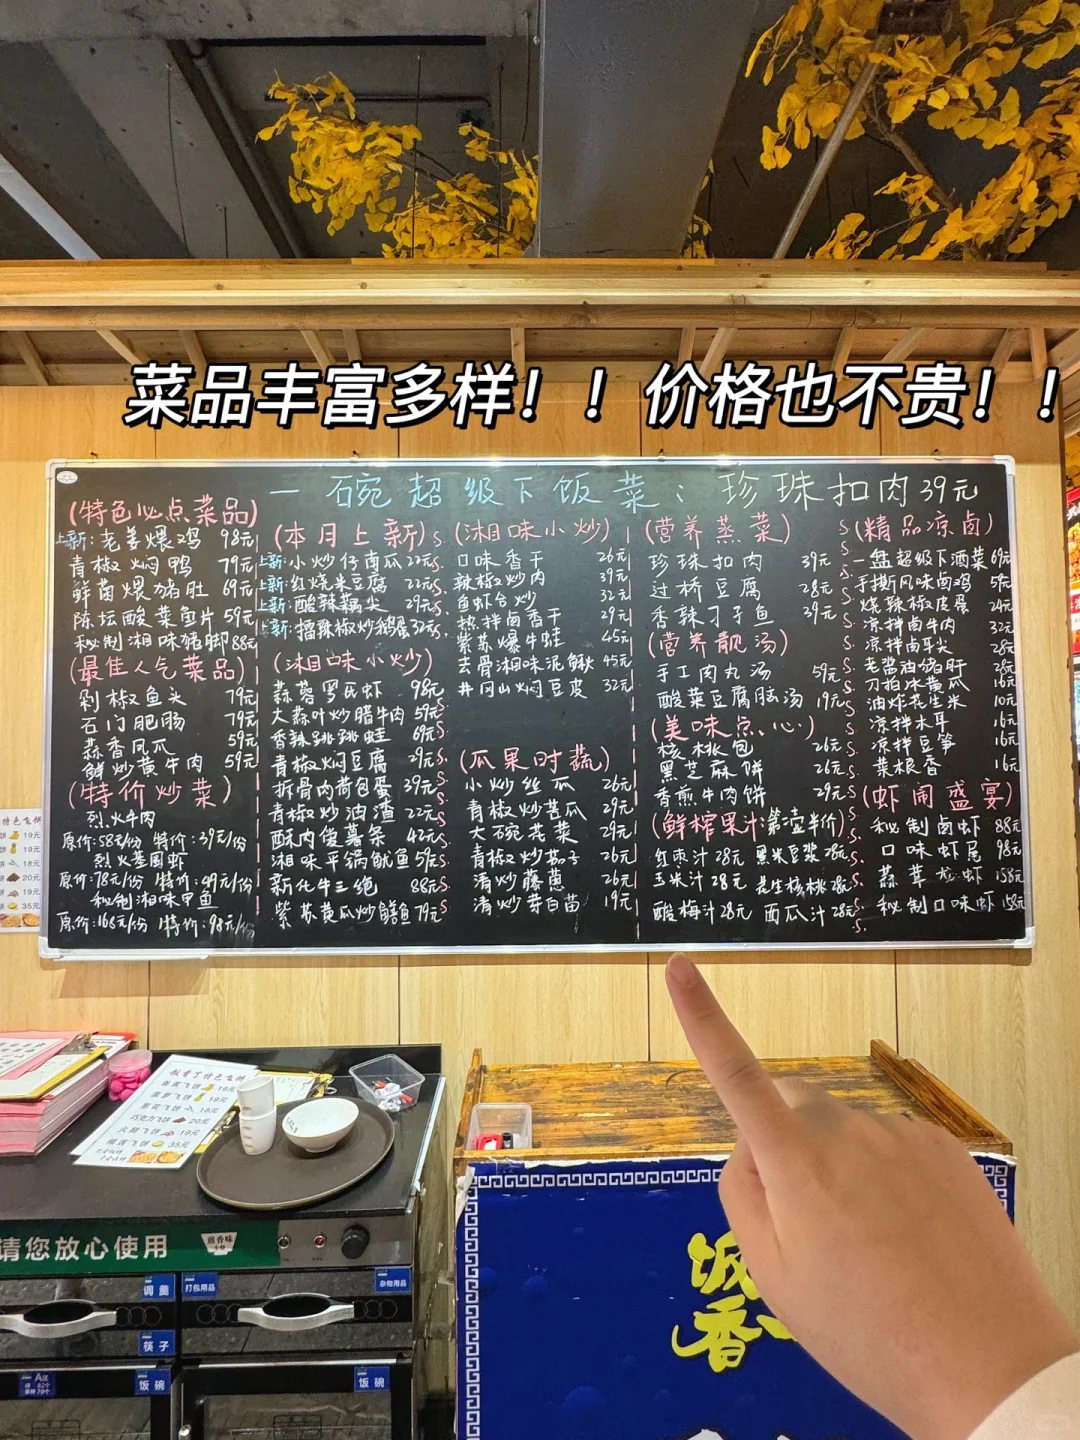 菜品丰富多样！！价格也不贵！！
一碗超级下饭菜：珍珠扣肉39元
(特色必点菜品)
上新：老姜煨鸡 98元
青椒焖鸭 79元
鲜菌煨猪肚 69元
陈坛酸菜鱼片 59元
秘制湘味猪脚 88元
(最佳人气菜品)
剁椒鱼头 79元
石门肥肠 79元
蒜香凤爪 59元
鲜炒黄牛肉 59元
(特价炒菜)
烈火牛肉
原价：58元/份 特价：39元/份
烈火基围虾
原价：78元/份 特价：49元/份
秘制湘味甲鱼
原价：168元/份 特价：98元/份
(本月上新)
上新：小炒仔南瓜 22元
上新：红烧米豆腐 22元
上新：酸辣藕尖 29元
上新：擂辣椒炒鹅蛋 32元
(湘味小炒)
蒜蓉罗氏虾 98元
大蒜叶炒腊牛肉 59元
香辣跳跳蛙 69元
青椒焖豆腐 29元
拆骨肉荷包蛋 39元
青椒炒油渣 22元
酥肉傻薯条 42元
湘味平锅鱿鱼 59元
新化牛三绝 88元
紫苏黄瓜炒鳝鱼 79元
(湘味小炒)
口味香干 26元
辣椒炒肉 39元
鱼虾合炒 32元
热拌卤香干 29元
紫苏爆牛蛙 45元
去骨湘味泥鳅 45元
井冈山焖豆皮 32元
(瓜果时蔬)
小炒丝瓜 26元
青椒炒苦瓜 29元
大碗花菜 29元
青椒炒茄子 26元
清炒藤蕹 26元
清炒芽白苗 19元
(营养蒸菜)
珍珠扣肉 39元
过桥豆腐 28元
香辣刁子鱼 39元
(营养靓汤)
手工肉丸汤 59元
酸菜豆腐脑汤 19元
(美味点心)
核桃包 26元
黑芝麻饼 26元
香煎牛肉饼 29元
(鲜榨果汁：第二壶半价)
红枣汁 28元 黑米豆浆 28元
玉米汁 28元 花生核桃 28元
酸梅汁 28元 西瓜汁 28元
(精品凉卤)
一盘超级下酒菜 69元
手撕风味卤鸡 59元
烧辣椒皮蛋 24元
凉拌卤牛肉 32元
凉拌卤耳尖 28元
老酱油猪肝 28元
刀拍冰黄瓜 16元
油炸花生米 10元
凉拌木耳 16元
凉拌豆笋 16元
菜根香 16元
(虾闹盛宴)
秘制卤虾 88元
口味虾尾 98元
蒜茸龙虾 158元
秘制口味虾 158元
特色飞饼
19元
19元
18元
20元
19元
35元
特色飞饼
香蕉飞饼 19元
菠萝飞饼 19元
葱花飞饼 18元
巧克力飞饼 20元
火腿飞饼 19元
榴莲飞饼 35元
请您放心使用
煎香味
小炒
调羹
打包用品
杂物用品
筷子
A区
饭碗
饭碗
饭
香